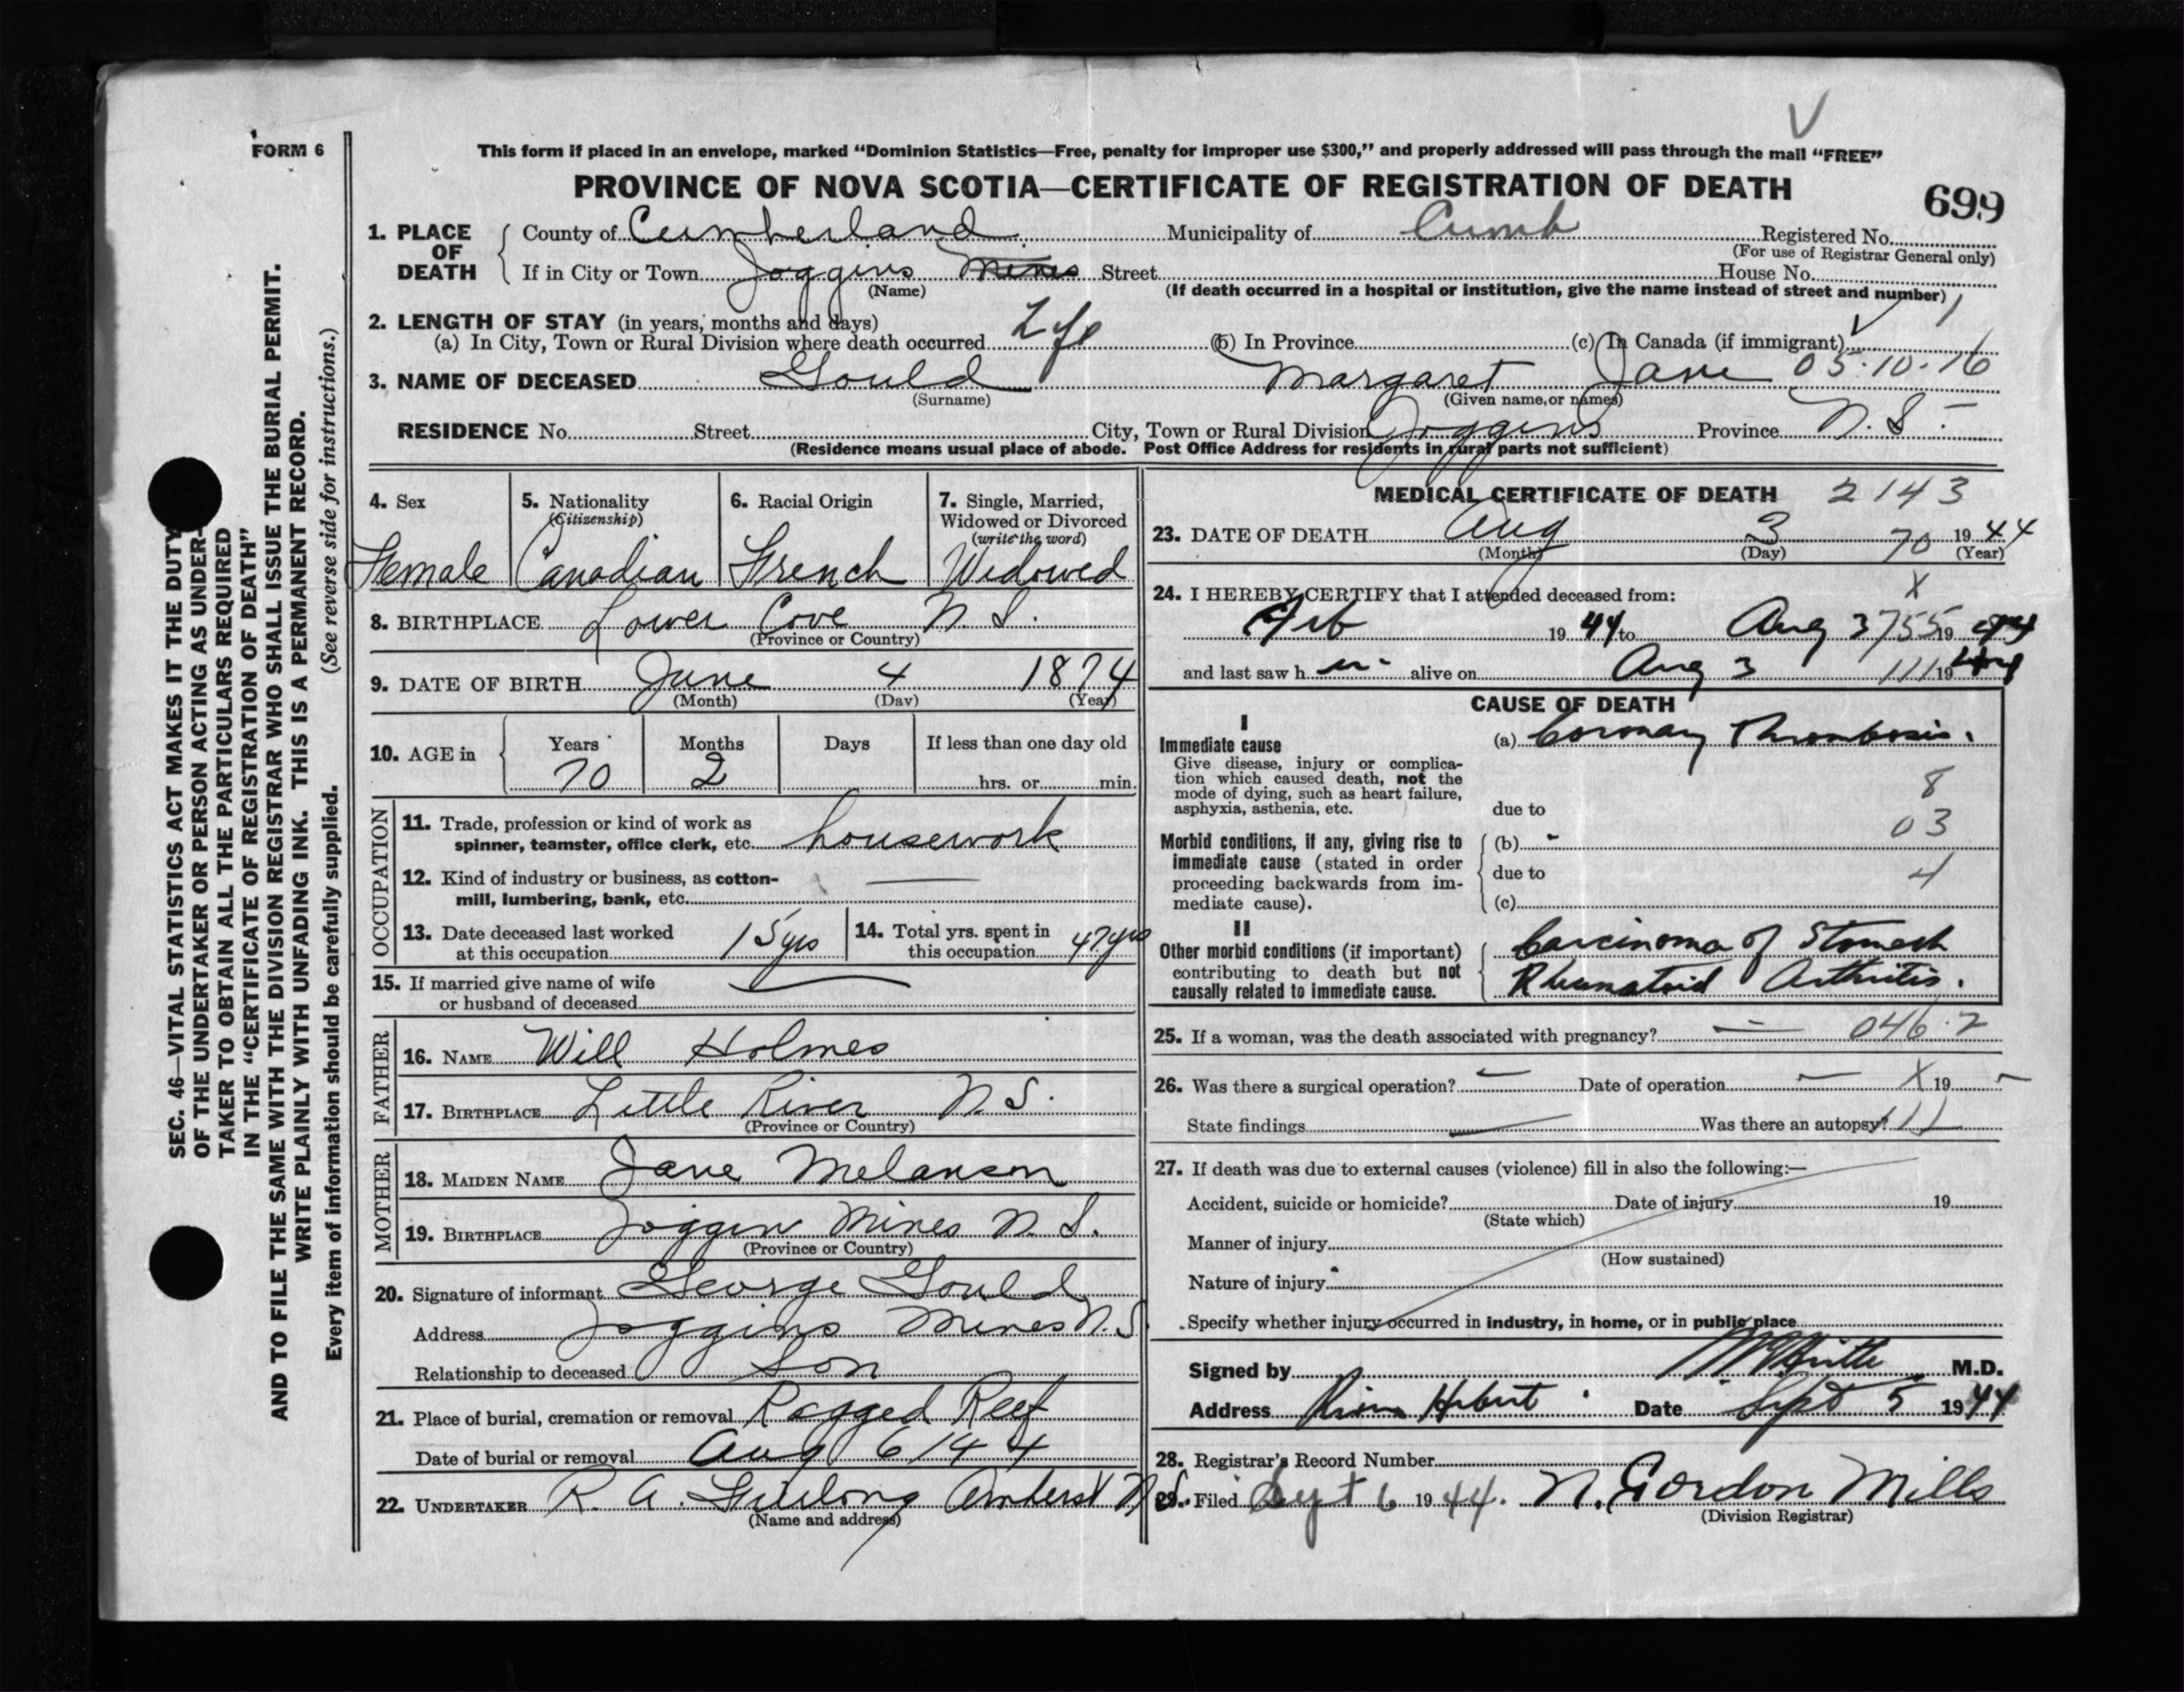 FORM 6
This form if placed in an envelope, marked "Dominion Statistics—Free, penalty for improper use $300," and properly addressed will pass through the mail "FREE"
PROVINCE OF NOVA SCOTIA—CERTIFICATE OF REGISTRATION OF DEATH
699
1. PLACE OF DEATH County of Cumberland Municipality of Cumb Registered No.
(For use of Registrar General only)
If in City or Town Joggins Mines Street House No.
(Name) (If death occurred in a hospital or institution, give the name instead of street and number)
2. LENGTH OF STAY (in years, months and days)
(a) In City, Town or Rural Division where death occurred Life (b) In Province (c) In Canada (if immigrant)
3. NAME OF DECEASED Gould Margaret Jane 05.10.16
(Surname) (Given name or names)
RESIDENCE No. Street City, Town or Rural Division Joggins Province N.S.
(Residence means usual place of abode. Post Office Address for residents in rural parts not sufficient)
4. Sex Female
5. Nationality (Citizenship) Canadian
6. Racial Origin French
7. Single, Married, Widowed or Divorced (write the word) Widowed
8. BIRTHPLACE Lower Cove N.S.
(Province or Country)
9. DATE OF BIRTH June 4 1874
(Month) (Day) (Year)
10. AGE in Years 70 Months 2 Days If less than one day old hrs. or min.
OCCUPATION
11. Trade, profession or kind of work as
spinner, teamster, office clerk, etc. housework
12. Kind of industry or business, as cotton-
mill, lumbering, bank, etc.
13. Date deceased last worked
at this occupation 15 yrs
14. Total yrs. spent in
this occupation 47 yrs
15. If married give name of wife
or husband of deceased
FATHER
16. NAME Will Holmes
17. BIRTHPLACE Little River N.S.
(Province or Country)
MOTHER
18. MAIDEN NAME Jane Melanson
19. BIRTHPLACE Joggin Mines N.S.
(Province or Country)
20. Signature of informant George Gould
Address Joggins Mines N.S
Relationship to deceased Son
21. Place of burial, cremation or removal Ragged Reef
Date of burial or removal Aug 6/44
22. UNDERTAKER R. A. Amherst N.S.
(Name and address)
MEDICAL CERTIFICATE OF DEATH 2143
23. DATE OF DEATH Aug 3 70 1944
(Month) (Day) (Year)
24. I HEREBY CERTIFY that I attended deceased from: X
Feb 1944 to Aug 3 755 19 44
and last saw h er alive on Aug 3 111 19 44
CAUSE OF DEATH
I
Immediate cause
Give disease, injury or complica-
tion which caused death, not the
mode of dying, such as heart failure,
asphyxia, asthenia, etc.
(a) Coronary Thrombosis.
8
due to
03
Morbid conditions, if any, giving rise to
immediate cause (stated in order
proceeding backwards from im-
mediate cause).
(b)
due to 4
(c)
II
Other morbid conditions (if important)
contributing to death but not
causally related to immediate cause.
Carcinoma of Stomach
Rheumatoid Arthritis.
25. If a woman, was the death associated with pregnancy? 046.2
26. Was there a surgical operation? Date of operation X 19
State findings Was there an autopsy?
27. If death was due to external causes (violence) fill in also the following:—
Accident, suicide or homicide? Date of injury 19
(State which)
Manner of injury
(How sustained)
Nature of injury
Specify whether injury occurred in industry, in home, or in public place
Signed by M.D.
Address River Hebert Date Sept 5 1944
28. Registrar's Record Number
29. Filed Sept 6 1944. N. Gordon Mills
(Division Registrar)
SEC. 46—VITAL STATISTICS ACT MAKES IT THE DUTY
OF THE UNDERTAKER OR PERSON ACTING AS UNDER-
TAKER TO OBTAIN ALL THE PARTICULARS REQUIRED
IN THE "CERTIFICATE OF REGISTRATION OF DEATH"
AND TO FILE THE SAME WITH THE DIVISION REGISTRAR WHO SHALL ISSUE THE BURIAL PERMIT.
WRITE PLAINLY WITH UNFADING INK. THIS IS A PERMANENT RECORD.
Every item of information should be carefully supplied. (See reverse side for instructions.)